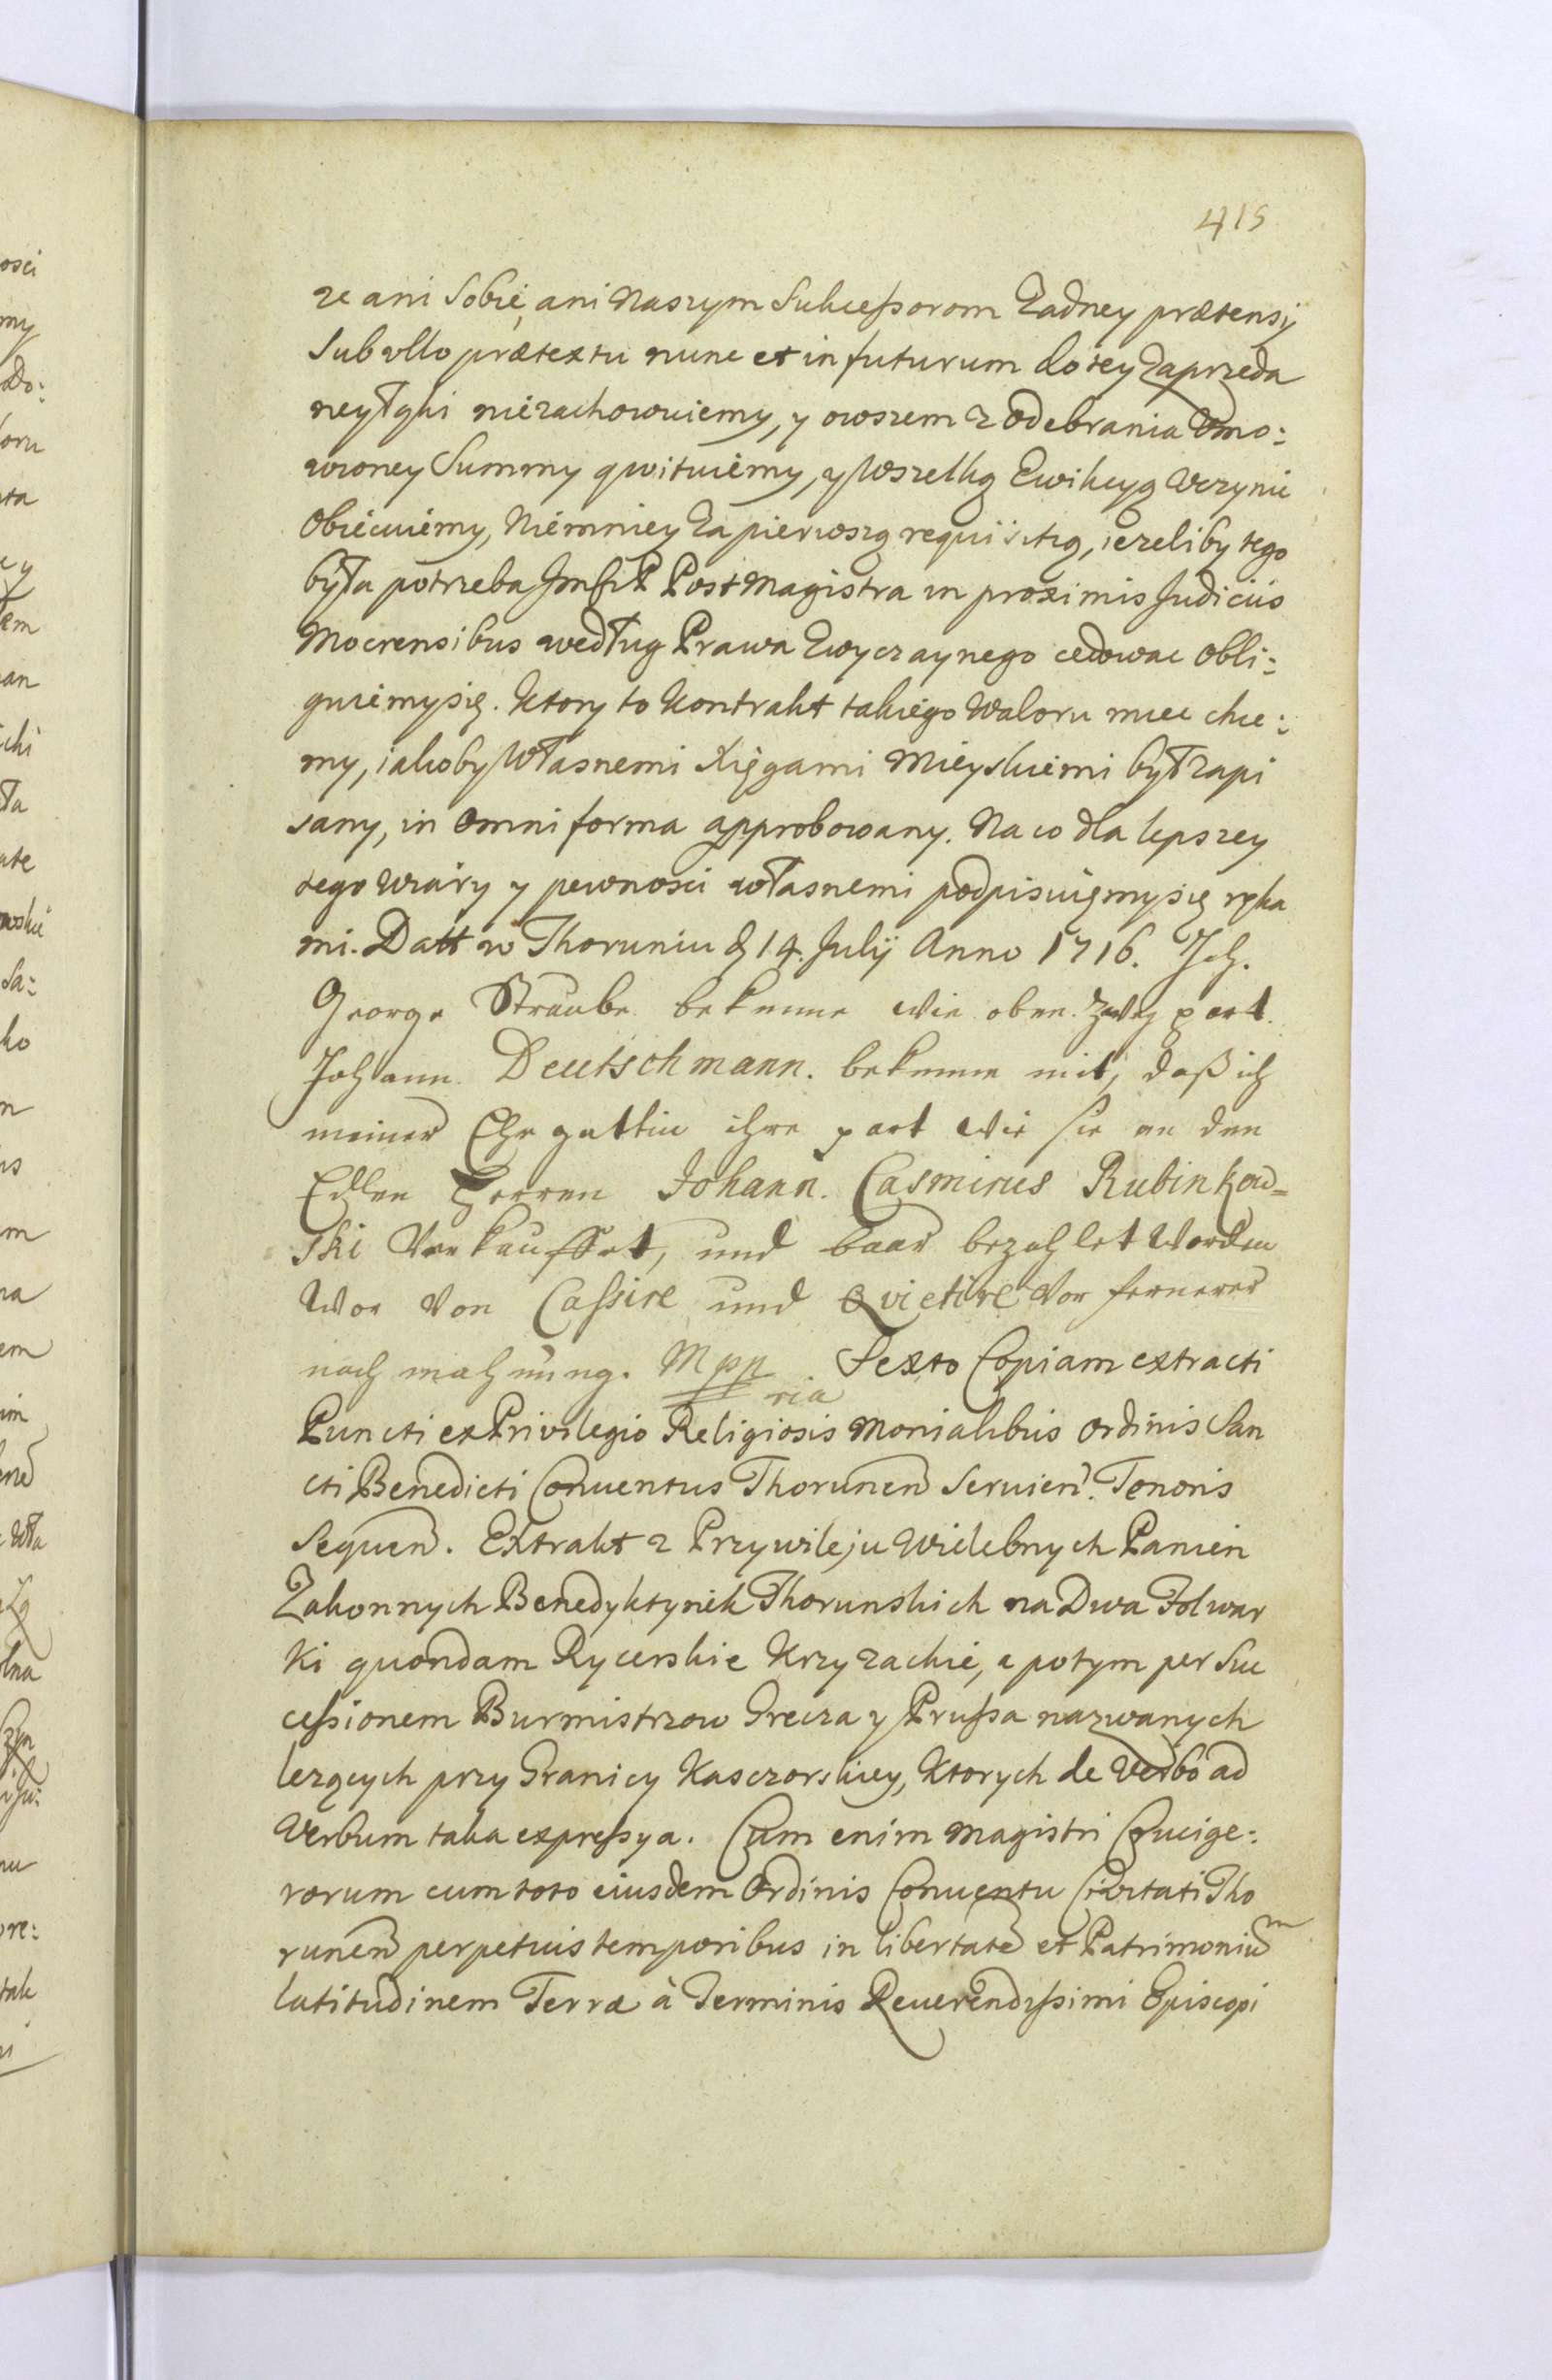 415
ze ani Sobie, ani Naszym Sukcessorom Zadney prætensÿ
Sub ullo prætextu nunc et in futurum do tey Zaprzeda
ney Łąki niezachowuiemy, y owszem z odebrania Vmo:
wioney Summy qwituiemy, y Wszelką Ewikcyą Vczynic
Obiecuiemy, Niemniey Za pierwszą requisitią, iezeliby tego
była potrzeba P Postmagistra in proximis Judiciis
Mocrensibus według Prawa Zwyczaynego cedowac obli:
guiemy się. Ktory to Kontrakt takiego Waloru miec chce:
my, iakoby Własnemi Xięgami Mieyskiemi był zapi
sany, in Omni forma approbowany. Na co dla lepszey
tego wiary y pewnosci własnemi podpisuięmy się ręka
mi. Datt w Thoruniu d 14. Julÿ Anno 1716. Joh.
George Straube bekenne wie oben zweÿ part.
Johann Deutschmann. bekenne mit, daß ich
meiner Ehegattin ihre part wie sie an den
Edlen Herren Johann. Casmirus Rubinkow=
ski Verkauffet, und baar bezahlet Worden
Wor Von Cassire und Qvietire Vor fernerer
nach mahnung. Mpp
ria Sexto Copiam extracti
Puncti ex Privilegio Religiosis Monialibus Ordinis San
cti Benedicti Conuentus Thorunen Seruien. Tenoris
Sequen. Extrakt z Przywileju Wielebnych Panien
Zakonnych Benedyktynek Thorunskich na Dwa Folwar
ki quondam Rycerskie Krzyzackie, a potym per Suc
cessionem Burmistrzow Grecza y Prussa nazwanych
lezących przy Granicy Kasczorskiey, Ktorych de Verbo ad
Verbum taka expressya. Cum enim Magistri Crucige:
rorum cum toto eiusdem Ordinis Conuentu Ciuitati Tho
runen perpetuis temporibus in libertate et Patrimoniu͠m
latitudinem Terræ à Terminis Reuerendissimi Episcopi